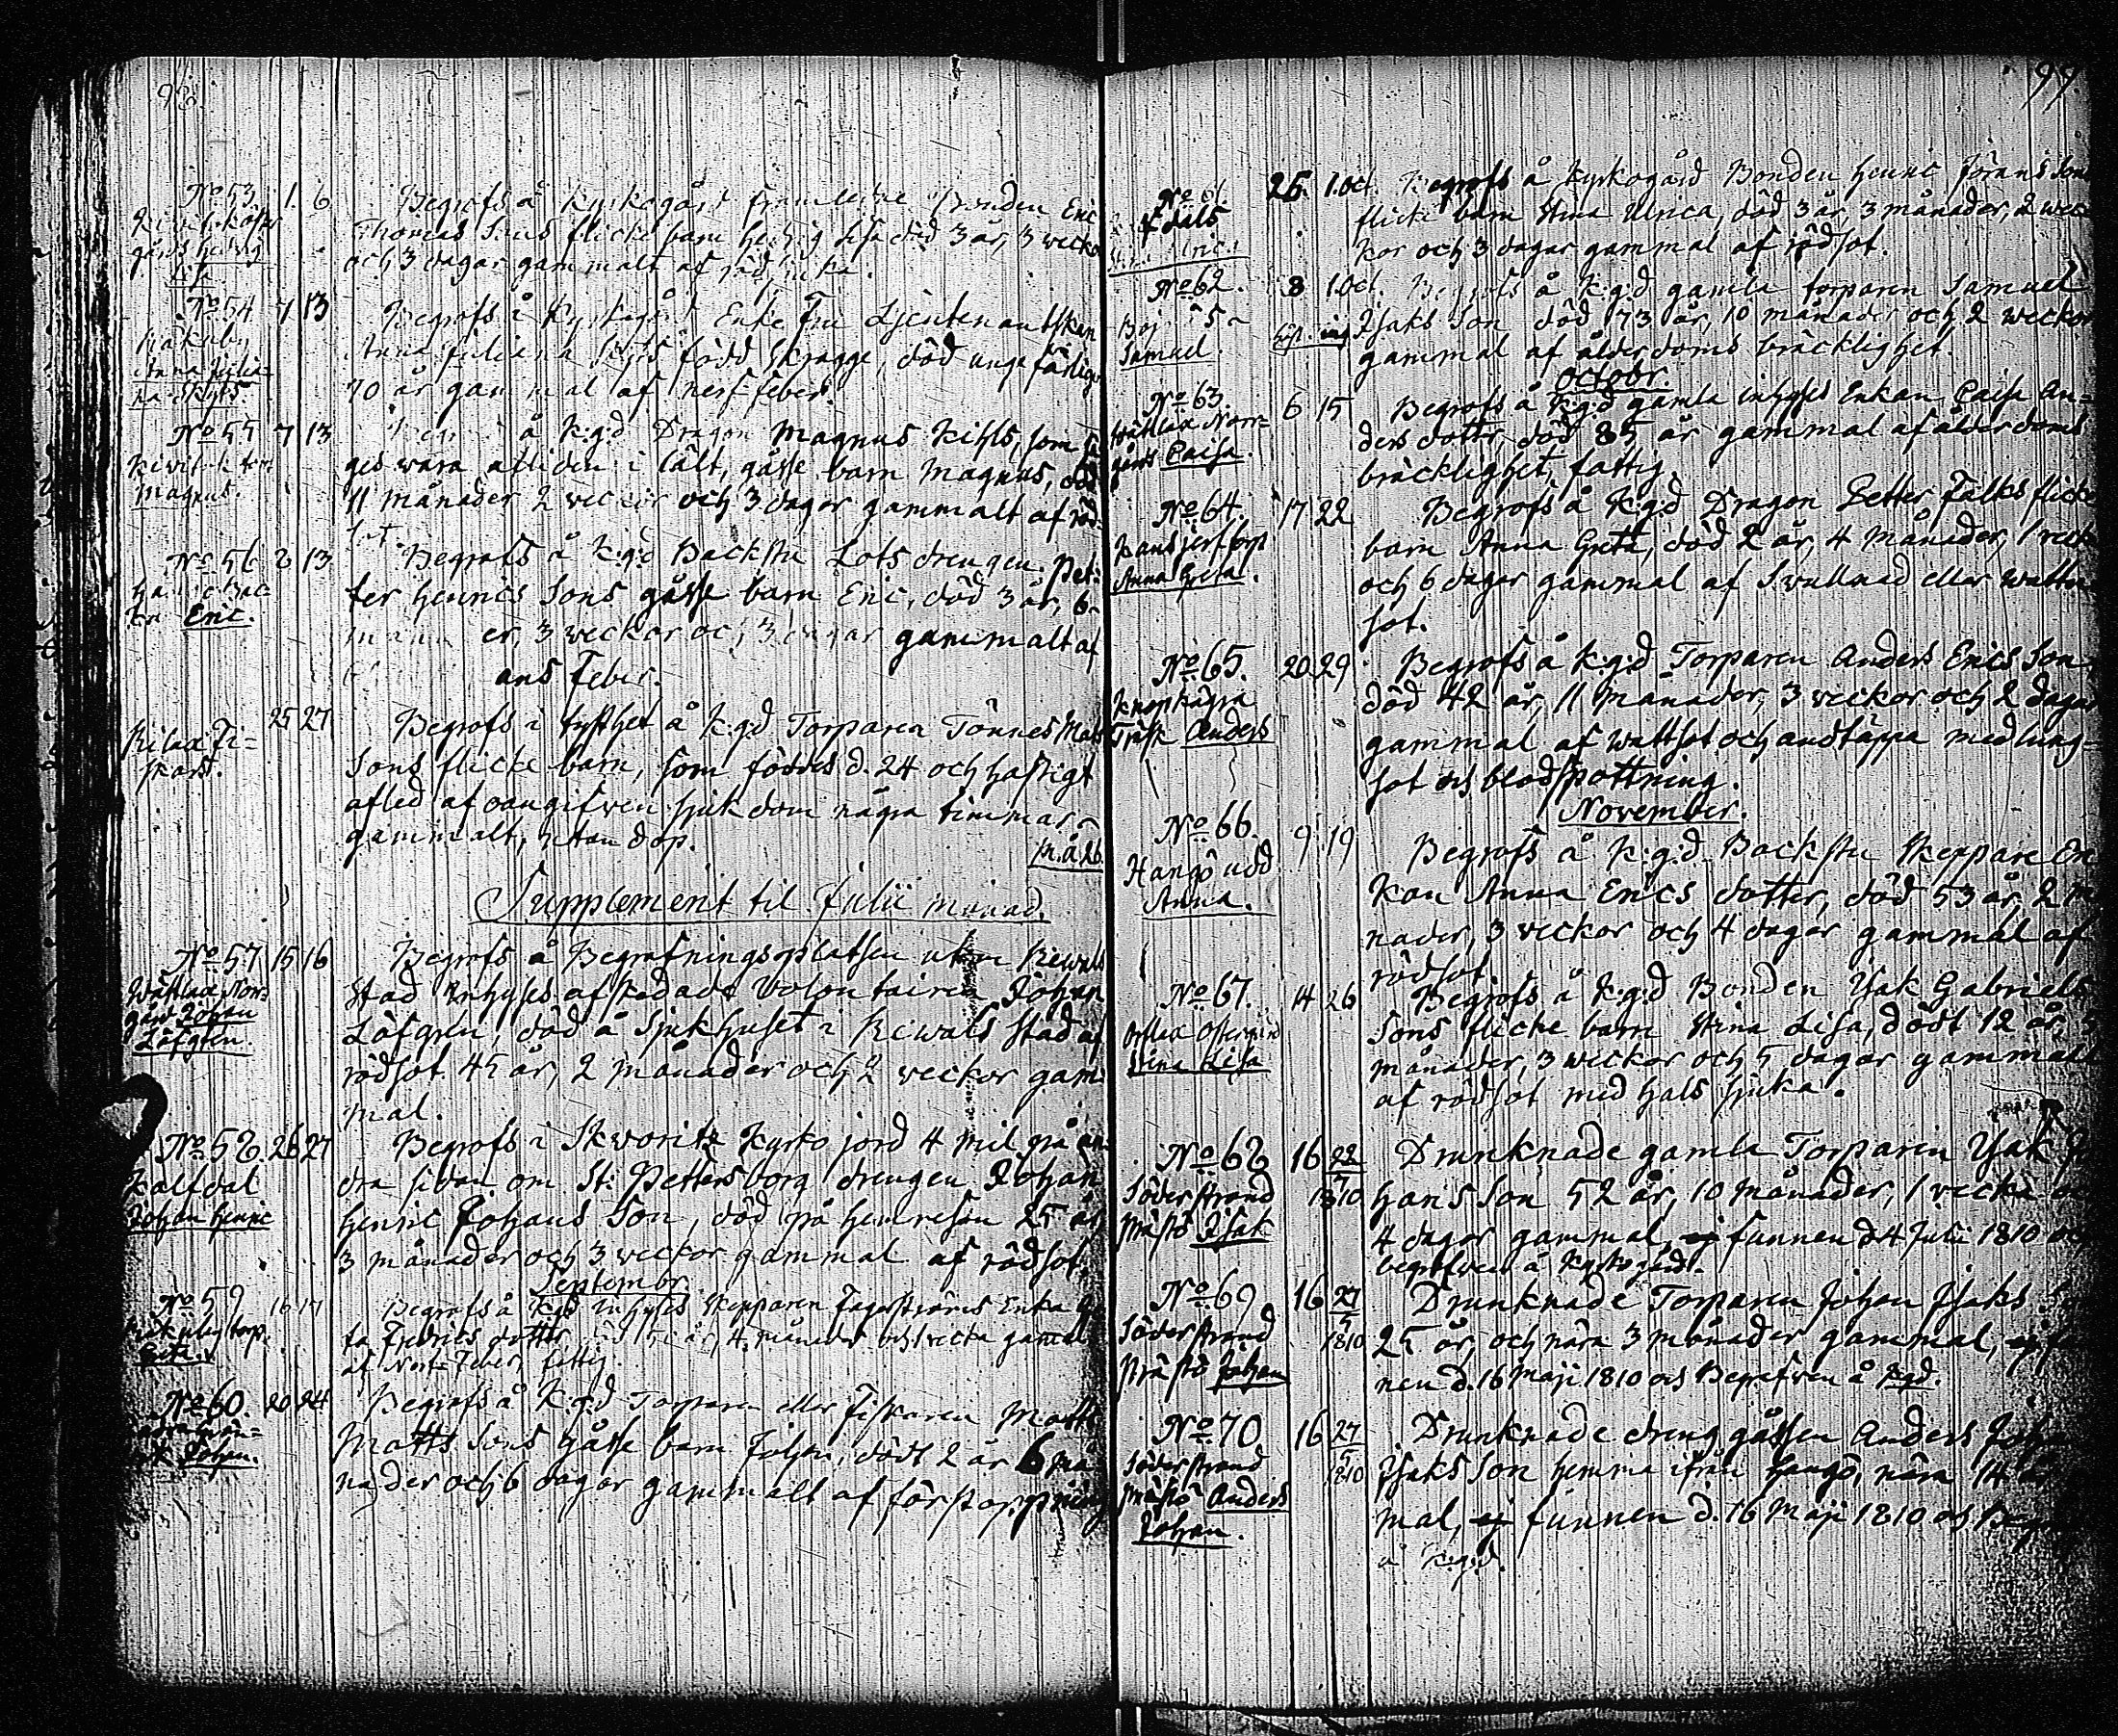 98.
No 53. 1. 6 Begrofs å Kyrkogård framledne Bonden Eric
gårds Hedvig Thomas Sons flicke barn Hedvig Lisa död 3 år, 3 weckor
Lisa och 3 dagar gammalt af
No 54 7 13 Begrofs å Kyrkogård Enke Fru Lieutenantskan
Anna Julia- Anna Juliana född Skragge, död unge färligen
na 70 år gammal af nerf feber.
No 55 7 13 å K:g:d Dragon Magnus Kihls, som sä
ges wara afliden i tält, gåsse barn Magnus, död
Magnus. 11 månader 2 weckor och 3 dagar gammalt af röd-
sot.
No 56 8 13 Begrofs å K:g:d Backstu Lots drengen Pet-
ter Henrics Sons gåsse barn Eric, död 3 år, 6
Eric. er, 3 weckor och 3 dagar gammalt af
ans Feber.
25 27 Begrofs i tysthet å K:g:d Torparen Tönnes Mats
Sons flicke barn, som föddes d. 24 och hastigt
afled af oangifven sjukdom några timmar
gammalt, utan dop.
Supplement til Julii månad.
No 57 15 16 Begrofs å Begrafningsplatsen utom Rewals
Wättlax Nor- Stad Inhyses afskedade Volontairen Johan
gård Johan Löfgren, död å Sjukhuset i Rewals Stad af
Löfgren. rödsot 45 år, 2 månader och 2 weckor gam-
mal.
No 58. 26 27 Begrofs i Skworitz Kyrko jord 4 mil på an
Kalfdal dra sidan om St: Pettersborg drengen Johan
Johan Henric Henric Johans Son, död på hemresan 25 år
3 månader och 3 weckor gammal af rödsot
Septembr.
No 59 16 17 Begrofs å K:g:d Inhyses Skepparen Fagerströms Enka
ta Fredrics dotter år, 4 månader och 1 wecka gammal
af Nerf Feber, fattig.
No 60. 20 24 Begrofs å K:g:d Torparen eller Fiskaren Matts
Matts Sons gåsse barn Johan, dödt 2 år 6 må
Johan. nader och 6 dagar gammalt af förstoppning
99
No 61 25. 1.Oct. Begrofs å Kyrkogård Bonden Henric Jörans Sons
flicke barn Stina Ulrica, död 3 år, 3 månader, 2 wec-
kor och 3 dagar gammal af rödsot.
No 62. 8 1.Oct. Begrofs å K:g:d gamla torparen Samuel
Isaks Son, död 73 år, 10 månader och 2 weckor
Samuel gammal af ålderdoms bräcklighet.
Octobr.
No 63. 6 15 Begrofs å K:g:d gamla inhyses Enkan Caisa An-
Wättlax Norr- ders dotter, död 85 år gammal af ålderdoms
gårds Caisa. bräcklighet, fattig.
No 64. 17 22 Begrofs å K:g:d Dragon Petter Falks flicke
barn Anna Greta, död 2 år, 4 månader, 1 wecka
Anna Greta. och 6 dagar gammal af Swullnad eller wattu-
sot.
No 65. 20 29 Begrofs å K:g:d Torparen Anders Erics Son,
död 42 år, 11 månader, 3 weckor och 2 dagar
Träsk Anders gammal af wattsot och andtäppa med lung-
sot och blodspottning.
November.
No 66. 9 19 Begrofs å K:g:d Backstu Skeppare En
Hangö udd kan Anna Erics dotter, död 53 år, 2 m
Anna. nader, 3 weckor och 4 dagar gammal af
rödsot.
No 67. 14 26 Begrofs å K:g:d Bonden Isak Gabriels
Sons flicke barn Stina Lisa, dödt 12 år, 5
Stina Lisa månader, 3 weckor och 5 dagar gammalt
af rödsot med hals sjuka.
No 68 16 22 Drunknade gamla Torparen Isak Jo
Söderstrand 7 1810 hans Son 52 år, 10 månader, 1 wecka och
Isak 4 dagar gammal, ej funnen d. 4 Julii 1810 och
begrafwen å Kyrkogård.
No 69 16 27 Drunknade Torparen Johan Isaks
Söderstrand 5 1810 25 år, och nära 3 månader gammal, ej
Johan nen d. 16 Maji 1810 och Begrafwen å K:g:d.
No 70 16 27 Drunknade dreng gåssen Anders Johan
Söderstrand 5 1810 Isaks Son hemma ifrån Hangö, nära 14 år
Anders mal, ej funnen d. 16 Maji 1810 och
Johan. å K:g:d.